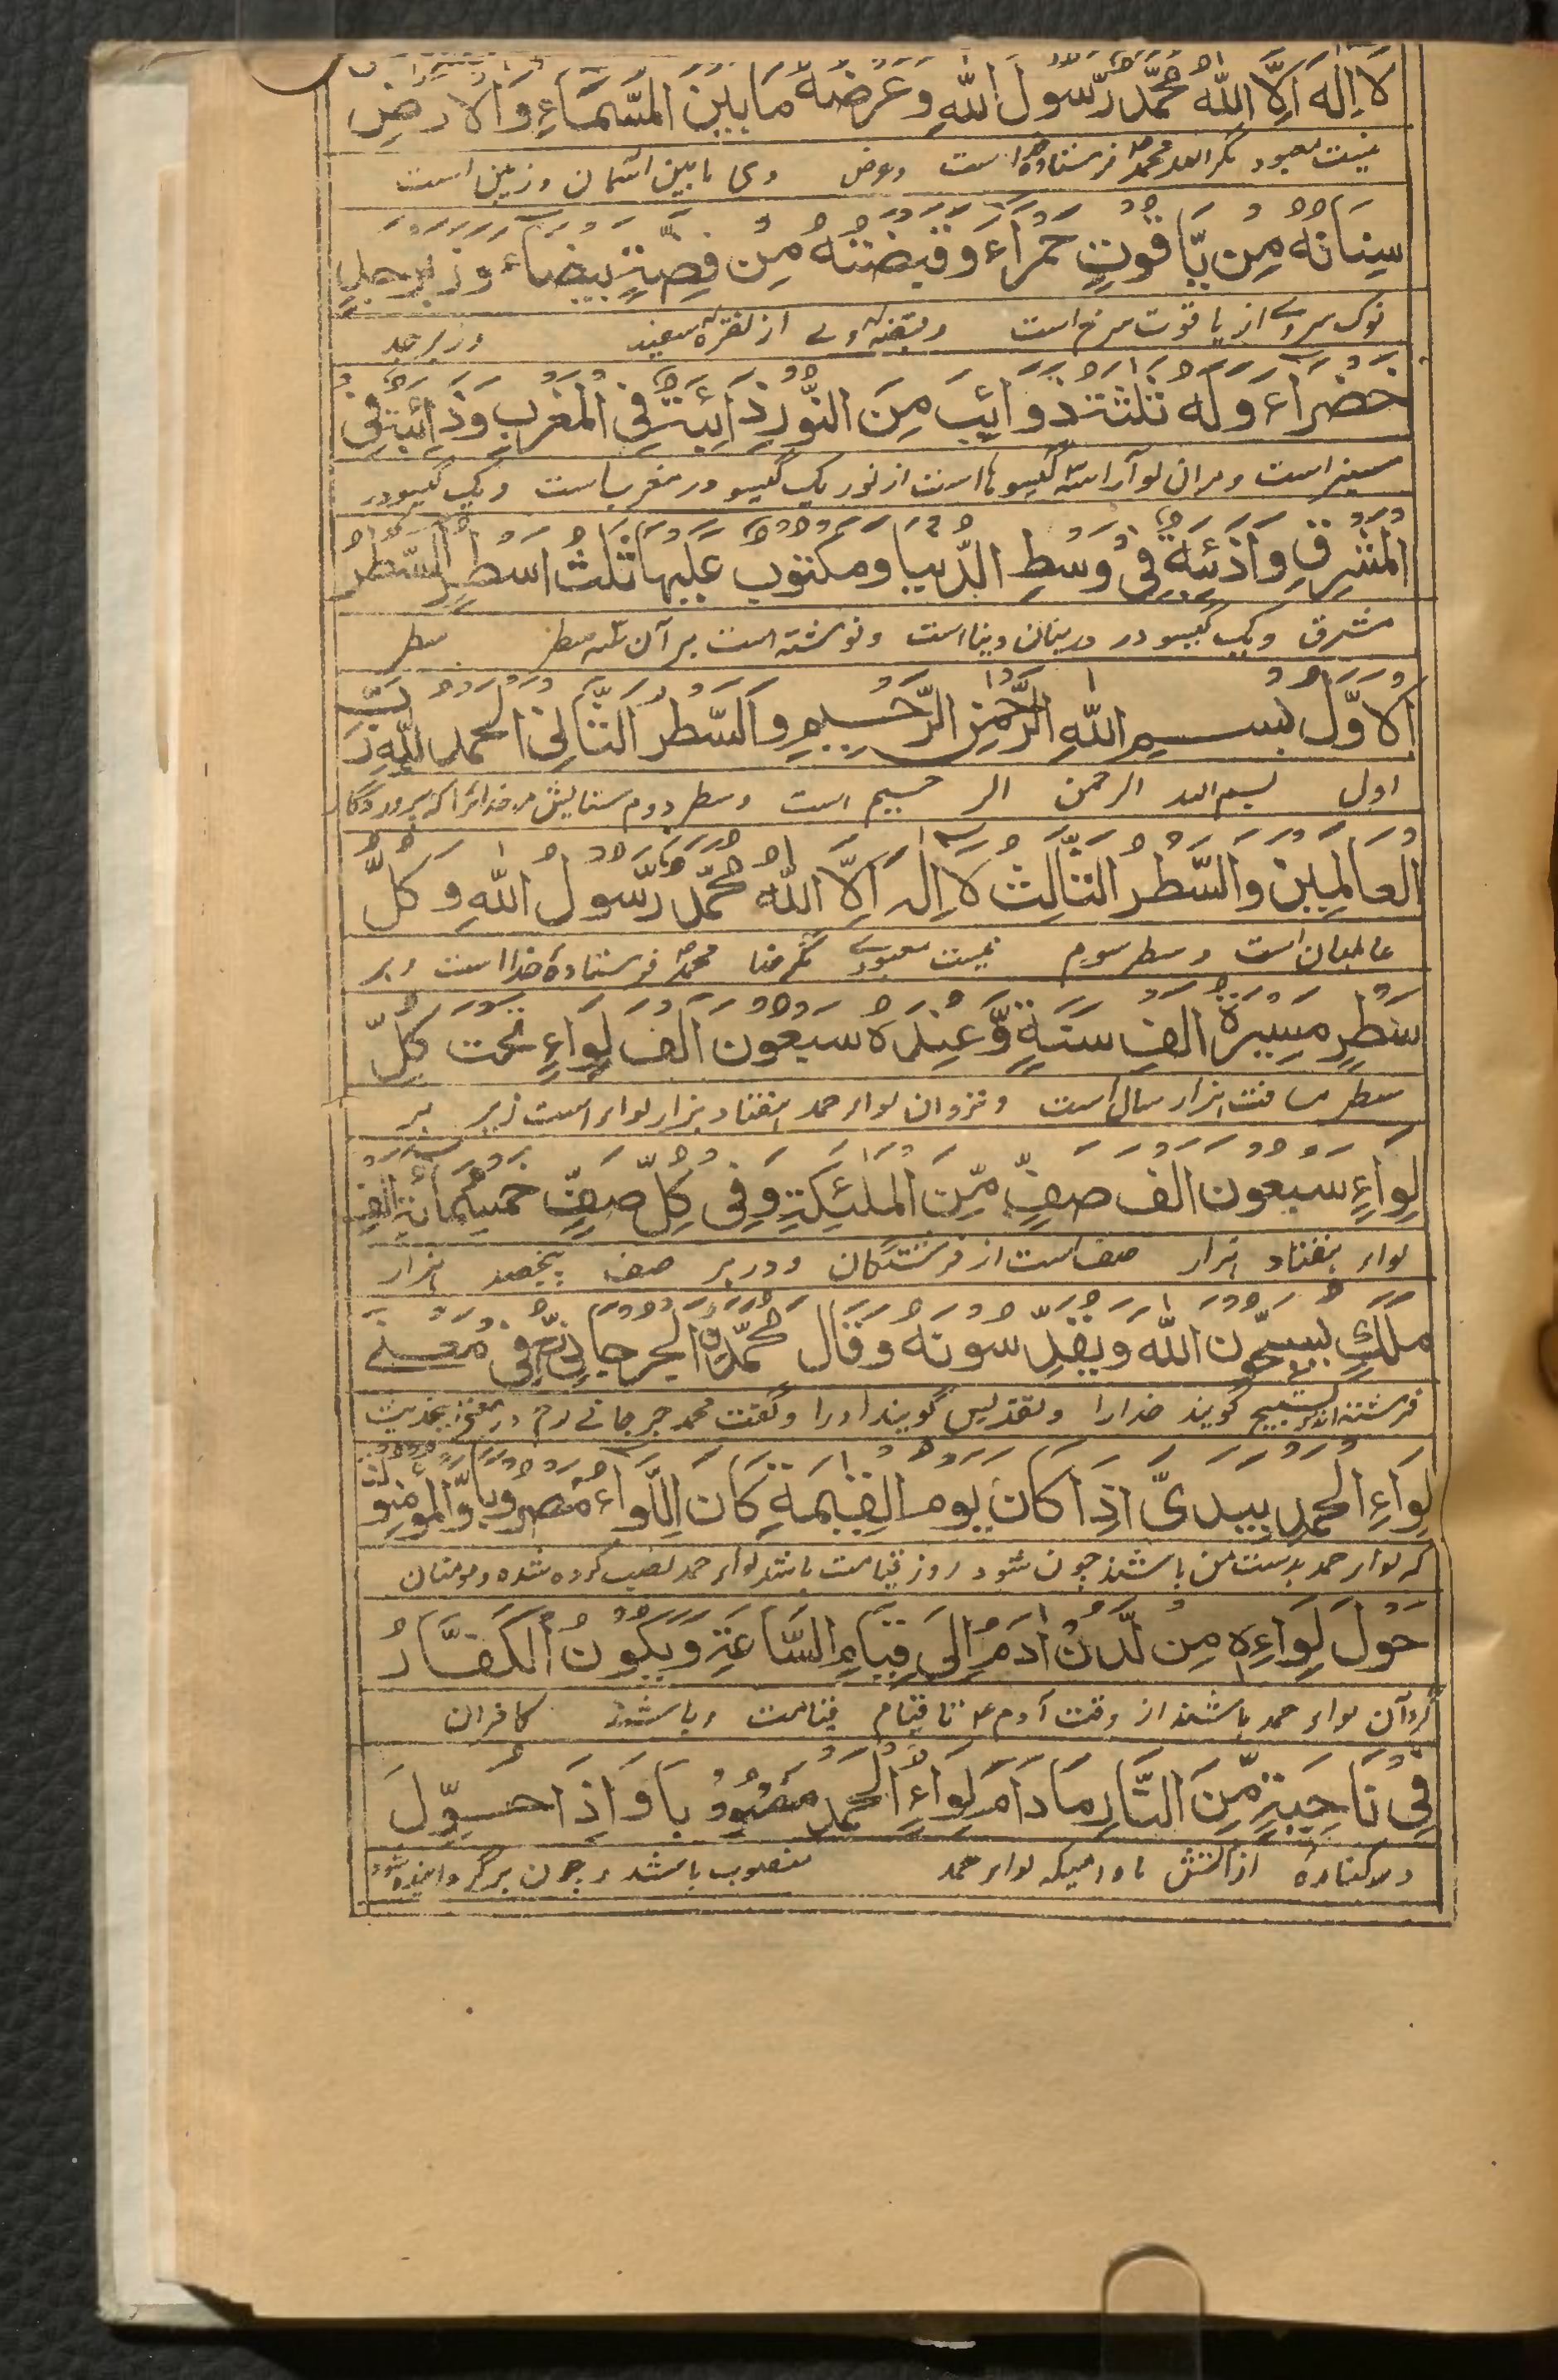 لَا اِلٰهَ اِلَّا اللّٰهُ مُحَمَّدٌ رَّسُوْلُ اللّٰهِ وَعَرْضُهٗ مَا بَيْنَ السَّمَاءِ وَالْاَرْضِ
نیست معبود مگر الله محمد فرستاده خدا است وعرض وی مابین آسمان و زمین است
سِنَانُهٗ مِنْ يَّاقُوْتٍ حَمْرَاءَ وَقَبْضَتُهٗ مِنْ فِضَّةٍ بَيْضَاءَ وَزَبَرْجَدٍ
نوک سروے از یاقوت سرخ است وقبضهٔ وے از نقرهٔ سفید وزبرجد
خَضْرَاءَ وَلَهٗ ثَلٰثَةُ ذَوَائِبَ مِنَ النُّوْرِ ذَائِبَةٌ فِی الْمَغْرِبِ وَذَائِبَةٌ فِی
سبز است ومران لوا را سه گیسوها است از نور یک گیسو در مغرب است ویک گیسو در
الْمَشْرِقِ وَاذَئِبَةٌ فِیْ وَسْطِ الدُّنْيَا وَمَكْتُوْبٌ عَلَيْهَا ثَلٰثُ اَسْطُرٍ اَلسَّطْرُ
مشرق ویک گیسو در میان دنیا است ونوشته است بر آن سه سطر سطر
الْاَوَّلُ بِسْمِ اللّٰهِ الرَّحْمٰنِ الرَّحِيْمِ وَالسَّطْرُ الثَّانِیْ اَلْحَمْدُ لِلّٰهِ رَبِّ
اول بسم الله الرحمن الرحیم است وسطر دوم ستایش مر خدائرا که پروردگار
الْعَالَمِيْنَ وَالسَّطْرُ الثَّالِثُ لَا اِلٰهَ اِلَّا اللّٰهُ مُحَمَّدٌ رَّسُوْلُ اللّٰهِ وَكُلُّ
عالمیان است وسطر سوم نیست معبودے مگر خدا محمد فرستادهٔ خدا است وہر
سَطْرٍ مَسِيْرَةُ اَلْفِ سَنَةٍ وَّعِنْدَهٗ سَبْعُوْنَ اَلْفَ لِوَاءٍ تَحْتَ كُلِّ
سطر مسافت ہزار سال است ونزد آن لواء حمد ہفتاد ہزار لواء است زیر ہر
لِوَاءٍ سَبْعُوْنَ اَلْفَ صَفٍّ مِّنَ الْمَلٰئِكَةِ وَفِیْ كُلِّ صَفٍّ خَمْسُمِائَةِ اَلْفِ
لواء ہفتاد ہزار صف است از فرشتگان ودر ہر صف پنجصد ہزار
مَلَكٍ يُسَبِّحُوْنَ اللّٰهَ وَيُقَدِّسُوْنَهٗ وَقَالَ مُحَمَّدُ الْجُرْجَانِیُّ فِیْ مَعْنٰے
فرشته اند تسبیح گویند خدارا وتقدیس گویند اورا وگفت محمد جرجانے رح در معنے حدیث
لِوَاءِ الْحَمْدِ بِيَدِیَّ اِذَا كَانَ يَوْمُ الْقِيٰمَةِ كَانَ اللِّوَاءُ مَضْرُوْبًا وَّالْمُؤْمِنُوْنَ
که لواء حمد بدست من باشد چون شود روز قیامت باشد لواء حمد نصب کرده شده ومومنان
حَوْلَ لِوَاءِهٖ مِنْ لَّدُنْ اٰدَمَ اِلٰى قِيَامِ السَّاعَةِ وَيَكُوْنُ الْكُفَّارُ
گرد آن لواء حمد باشند از وقت آدم تا قیام قیامت وباشند کافران
فِیْ نَاحِيَةٍ مِّنَ النَّارِ مَا دَامَ لِوَاءُ الْحَمْدِ مَضْرُوْبًا وَاِذَا حُوِّلَ
در کنارهٔ از آتش مادامیکه لواء حمد منصوب باشد وچون برگردانیده شود